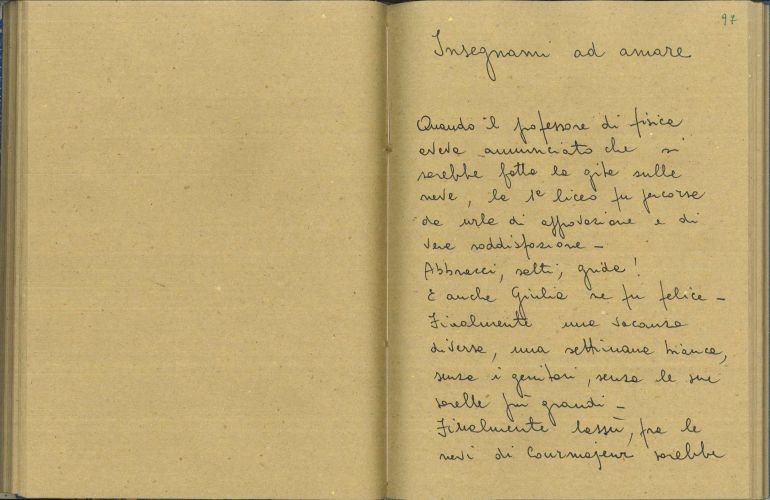 97
Insegnami ad amare
Quando il professore di fisica
aveva annunciato che si
sarebbe fatta la gita sulla
neve, la 1ª liceo fu percorsa
da urla di approvazione e di
vera soddisfazione -
Abbracci, salti, grida!
E anche Giulia ne fu felice -
Finalmente una vacanza
diversa, una settimana bianca,
senza i genitori, senza le sue
sorelle più grandi -
Finalmente lassù, fra le
nevi di Courmajeur sarebbe